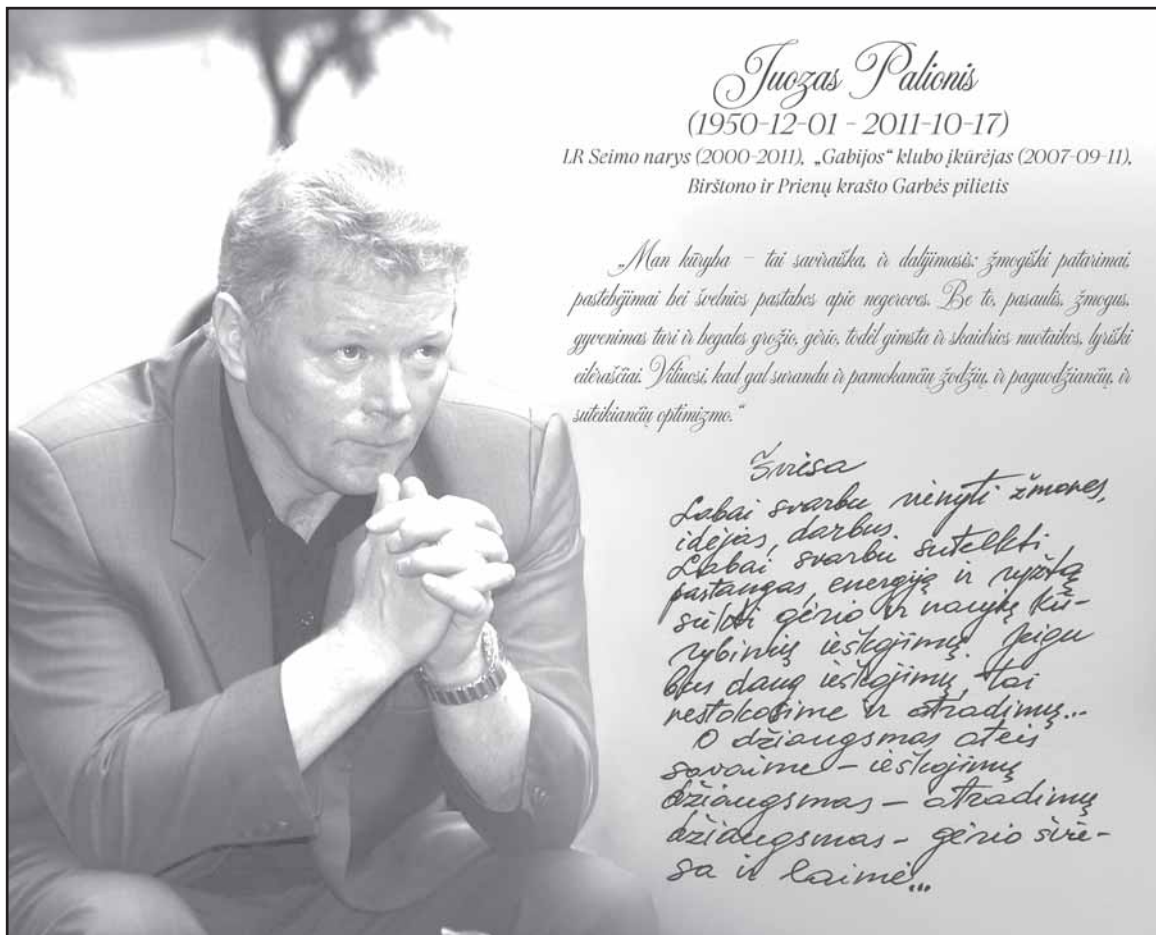 Juozas Palionis
(1950-12-01 - 2011-10-17)
LR Seimo narys (2000-2011), „Gabijos“ klubo įkūrėjas (2007-09-11),
Birštono ir Prienų krašto Garbės pilietis
„Man kūryba – tai saviraiška, ir dalijimasis: žmogiški patarimai,
pastebėjimai bei švelnios pastabos apie negeroves. Be to, pasaulis, žmogus,
gyvenimas turi ir begales grožio, gėrio, todėl gimsta ir skaidrios nuotaikos, lyriški
eilėraščiai. Viliuosi, kad gal surandu ir pamokančių žodžių, ir paguodžiančių, ir
suteikiančių optimizmo.“
Šviesa
Labai svarbu vienyti žmones,
idėjas, darbus.
Labai svarbu sutelkti
pastangas, energiją ir ryžtą
gėrio ir naujų kū-
rybinių ieškojimų. Jeigu
bus daug ieškojimų, tai
nestokosime ir atradimų...
O džiaugsmas ateis
savaime – ieškojimų
džiaugsmas – atradimų
džiaugsmas – gėrio švie-
sa ir laimė...